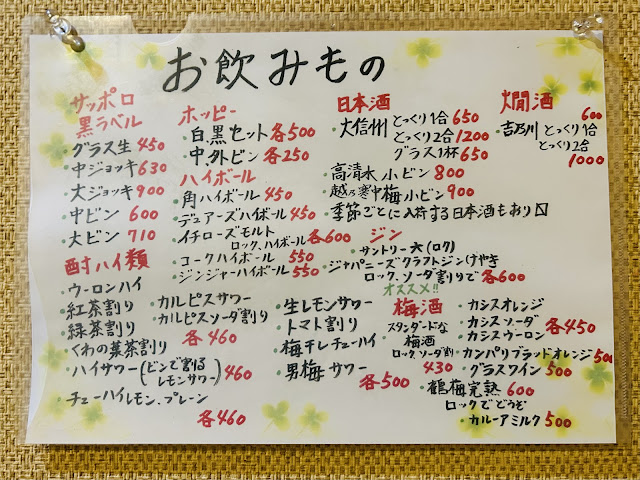 お飲みもの
サッポロ
黒ラベル
・グラス生 450
・中ジョッキ 630
・大ジョッキ 900
・中ビン 600
・大ビン 710
ホッピー
・白黒セット 各500
・中、外ビン 各250
ハイボール
・角ハイボール 450
・デュアーズハイボール 450
・イチローズモルト
ロック、ハイボール 各600
・コークハイボール 550
・ジンジャーハイボール 550
日本酒
・大信州 とっくり1合 650
とっくり2合 1200
グラス1杯 650
・高清水 小ビン 800
・越乃寒中梅 小ビン 900
・季節ごとに入荷する日本酒もあり〼
燗酒
・吉乃川 とっくり1合 600
とっくり2合
1000
ジン
・サントリー 六(ロク)
・ジャパニーズクラフトジン けやき
ロック、ソーダ割りで 各600
オススメ!!
酎ハイ類
・ウーロンハイ
・紅茶割り
・緑茶割り
・くわの葉茶割り
・ハイサワー(ビンで割るレモンサワー) 460
・チューハイ レモン、プレーン
各460
・カルピスサワー
・カルピスソーダ割り
各460
・生レモンサワー
・トマト割り
・梅干しチューハイ
・男梅サワー
各500
梅酒
・スタンダードな
梅酒
ロック、ソーダ割
430
・鶴梅完熟 600
ロックでどうぞ
・カシスオレンジ
・カシスソーダ
・カシスウーロン
各450
・カンパリブラッドオレンジ 500
・グラスワイン 500
・カルーアミルク 500